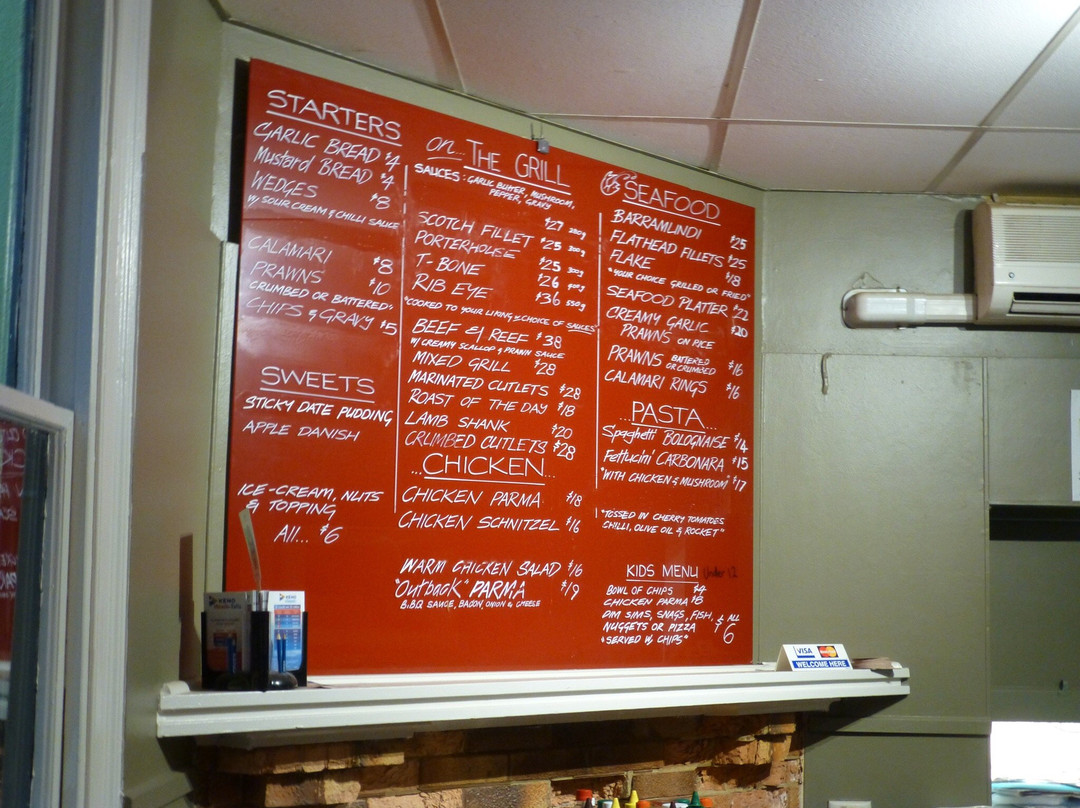 STARTERS
GARLIC BREAD $4
Mustard BREAD $4
WEDGES $8
W/ SOUR CREAM & CHILLI SAUCE
CALAMARI $8
PRAWNS $10
CRUMBED OR BATTERED"
CHIPS & GRAVY $5
SWEETS
STICKY DATE PUDDING
APPLE DANISH
ICE-CREAM, NUTS
& TOPPING
All... $6
on.. THE GRILL
SAUCES: GARLIC BUTTER, MUSHROOM,
PEPPER, GRAVY
$27
SCOTCH FILLET $25 300g
PORTERHOUSE $25 300g
T-BONE $26 400g
RIB EYE $36 550g
"COOKED TO YOUR LIKING & CHOICE OF SAUCES"
BEEF & REEF $38
W/ CREAMY SCALLOP & PRAWN SAUCE
MIXED GRILL $28
MARINATED CUTLETS $28
ROAST OF THE DAY $18
LAMB SHANK $20
CRUMBED CUTLETS $28
...CHICKEN...
CHICKEN PARMA $18
CHICKEN SCHNITZEL $16
WARM CHICKEN SALAD $16
"Outback" PARMA $19
B.B.Q SAUCE, BACON, ONION & CHEESE
SEAFOOD
BARRAMUNDI $25
FLATHEAD FILLETS $25
FLAKE $18
"YOUR CHOICE GRILLED OR FRIED"
SEAFOOD PLATTER $22
CREAMY GARLIC $20
PRAWNS ON RICE
PRAWNS BATTERED OR CRUMBED $16
CALAMARI RINGS $16
...PASTA...
Spaghetti BOLOGNAISE $14
Fettucini CARBONARA $15
"WITH CHICKEN & MUSHROOM" $17
"TOSSED IN CHERRY TOMATOES
CHILLI, OLIVE OIL & ROCKET"
KIDS MENU Under 12
BOWL OF CHIPS $4
CHICKEN PARMA $8
DIM SIMS, SNAGS, FISH,
NUGGETS OR PIZZA ALL $6
"SERVED W/ CHIPS"
VISA MasterCard
WELCOME HERE
KENO